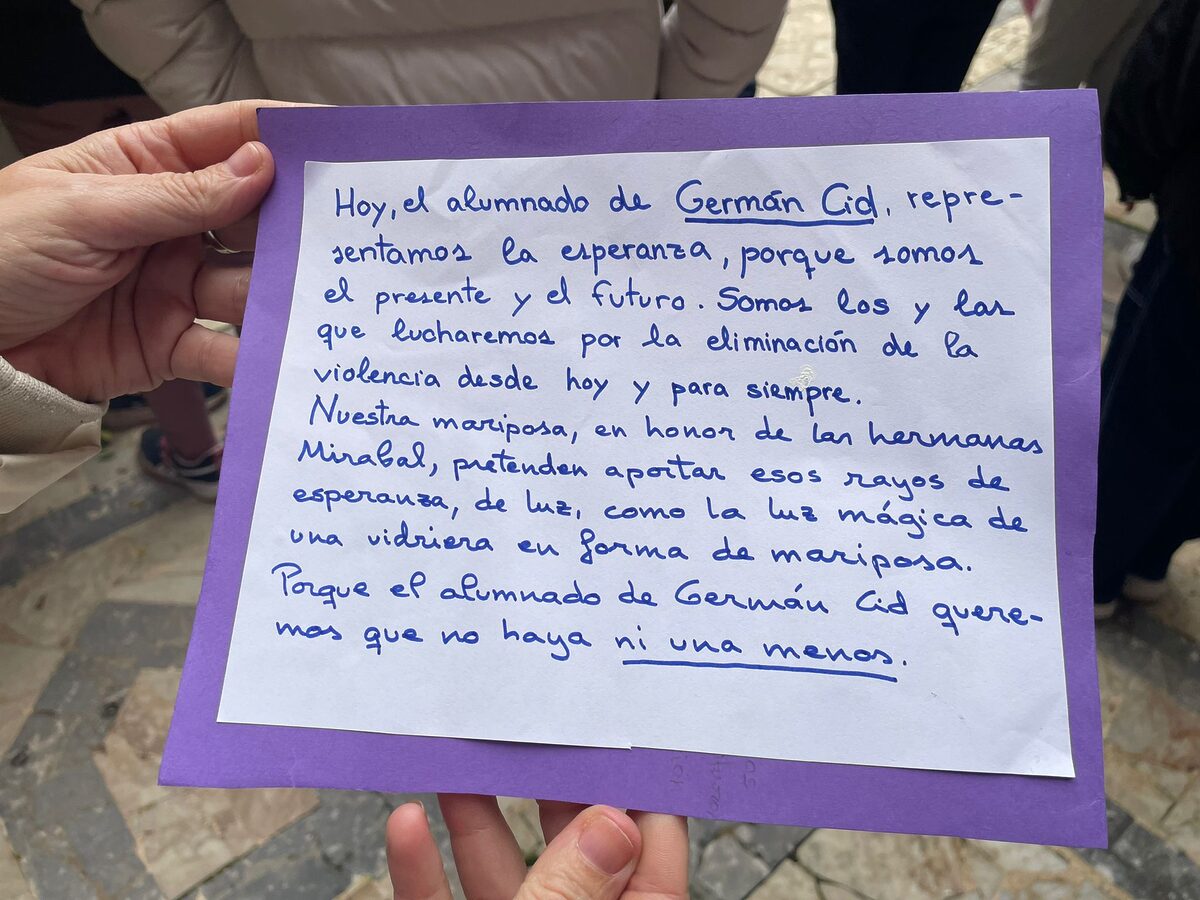 Hoy, el alumnado de Germán Cid, repre-
sentamos la esperanza, porque somos
el presente y el futuro. Somos los y las
que lucharemos por la eliminación de la
violencia desde hoy y para siempre.
Nuestra mariposa, en honor de las hermanas
Mirabal, pretenden aportar esos rayos de
esperanza, de luz, como la luz mágica de
una vidriera en forma de mariposa.
Porque el alumnado de Germán Cid quere-
mos que no haya ni una menos.